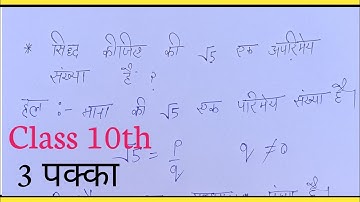 * सिद्ध कीजिए की √5 एक अपरिमेय
संख्या है ?
हल :- माना की √5 एक परिमेय संख्या है।
Class 10th
√5 = p/q q ≠ 0
3 पक्का
संख्या है।